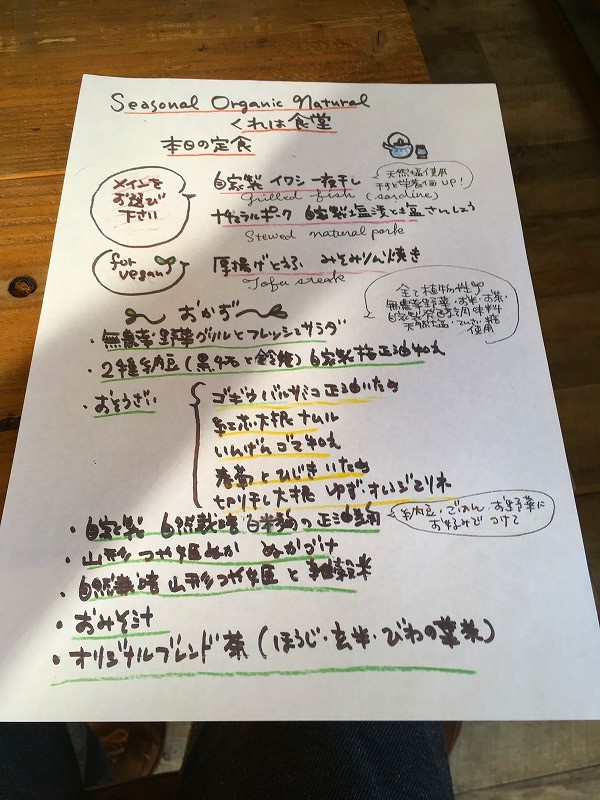 Seasonal Organic Natural
くれは食堂
本日の定食
メインを
お選び
下さい
自家製 イワシ一夜干し
grilled fish (sardine)
天然塩使用
干すと栄養価UP!
ナチュラルポーク 自家製塩漬と塩さんしょう
Stewed natural pork
for
vegan
厚揚げとねぎ みそみりん焼き
Tofu steak
全て植物性
無農薬野菜・お米・お茶・
自家製発酵調味料
天然塩・てんさい糖
使用
おかず
・無農薬野菜グリルとフレッシュサラダ
・2種納豆(黒千石と鈴姫)自家製梅正油和え
・おそうざい
ゴボウバルサミコ正油いため
紅赤大根ナムル
いんげんゴマ和え
春菊とひじきいため
切り干し大根 ゆず・オレンジマリネ
・自家製 自然栽培 白米麹の正油麹
納豆・ごはん・お野菜に
お好みでつけて
・山形つや姫ぬか ぬかづけ
・自然栽培 山形つや姫と雑穀米
・おみそ汁
・オリジナルブレンド茶(ほうじ・玄米・びわの葉茶)